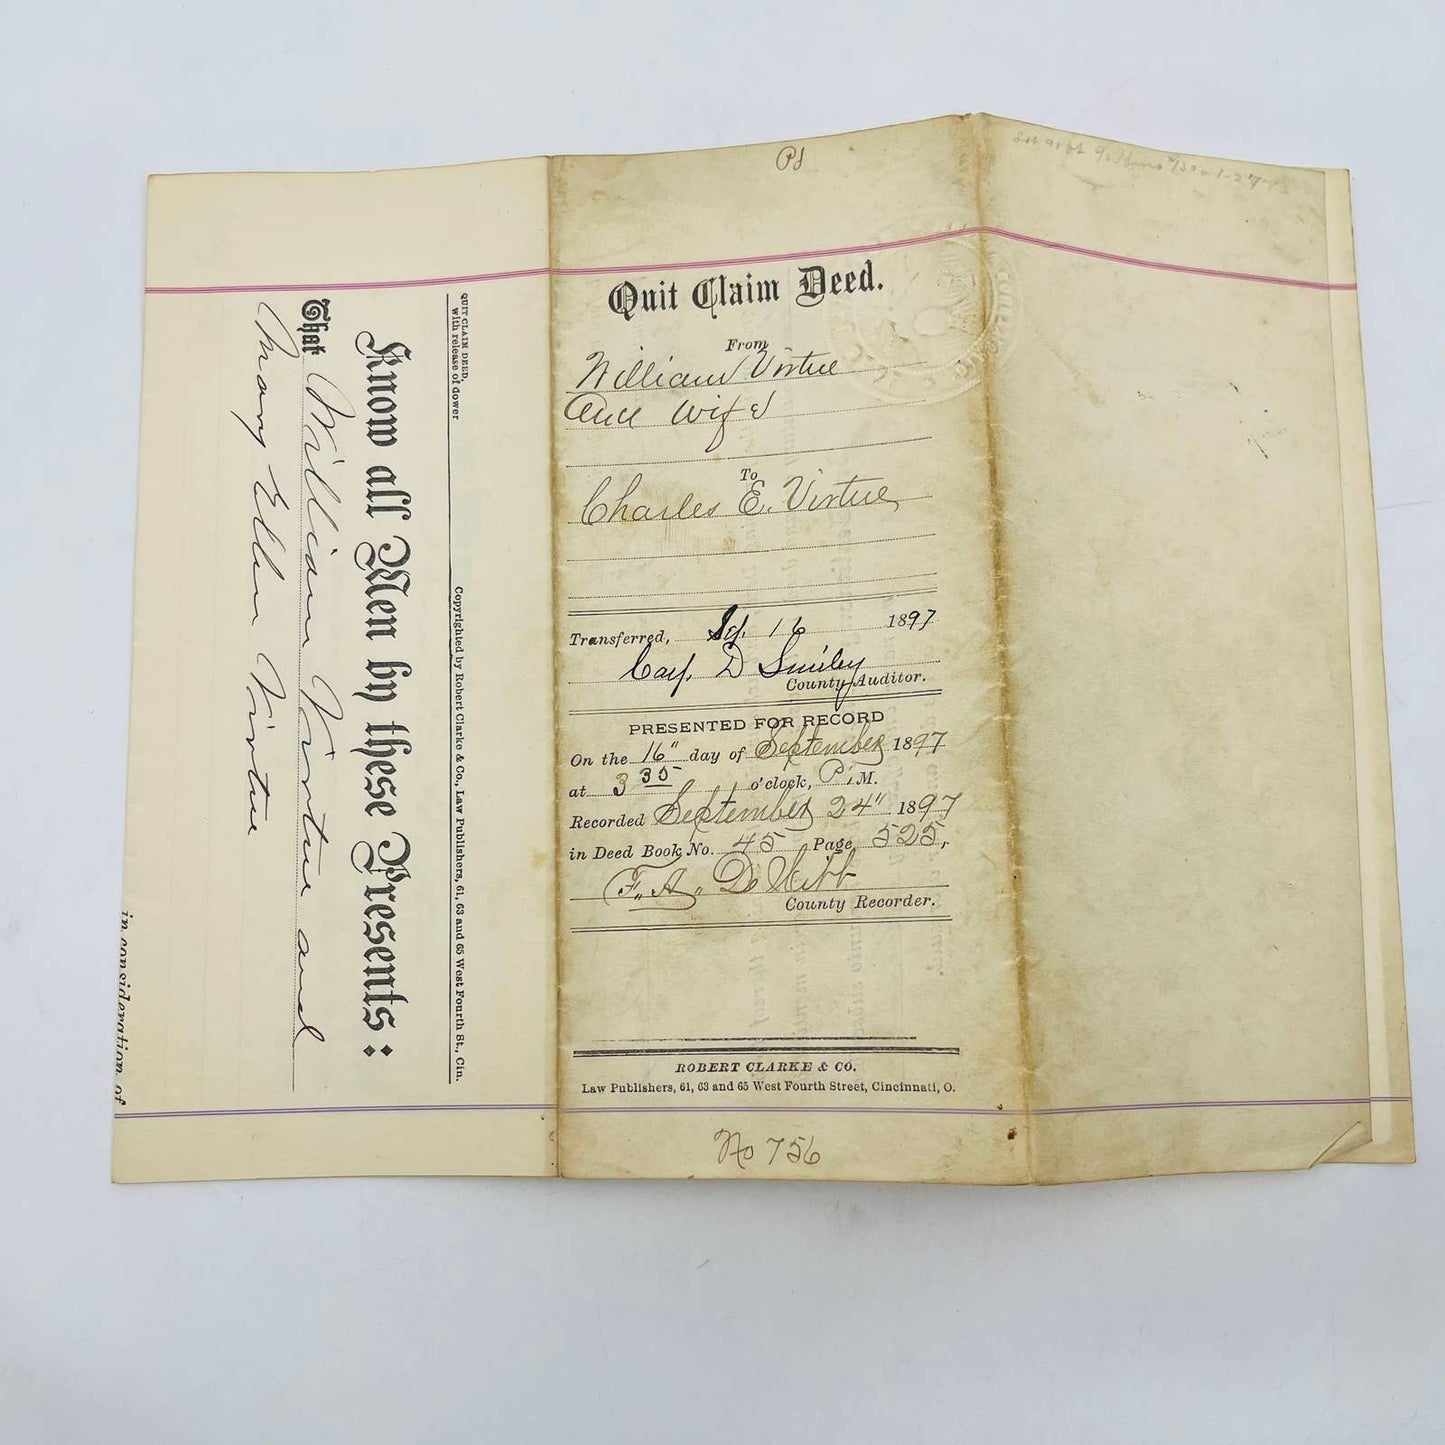 QUIT CLAIM DEED,
with release of dower
Copyrighted by Robert Clarke & Co., Law Publishers, 61, 63 and 65 West Fourth St., Cin.
Know all Men by these Presents:
That William Virtue and
Mary Ellen Virtue
in consideration of
Pd
Quit Claim Deed.
From
William Virtue
and wife
To
Charles E. Virtue
Transferred, 16 1897
D Smiley
County Auditor.
PRESENTED FOR RECORD
On the 16" day of September 1897
at 3 35 o'clock, P. M.
Recorded September 24" 1897
in Deed Book No. 45 Page 525,
F. A.
County Recorder.
ROBERT CLARKE & CO.
Law Publishers, 61, 63 and 65 West Fourth Street, Cincinnati, O.
No 756